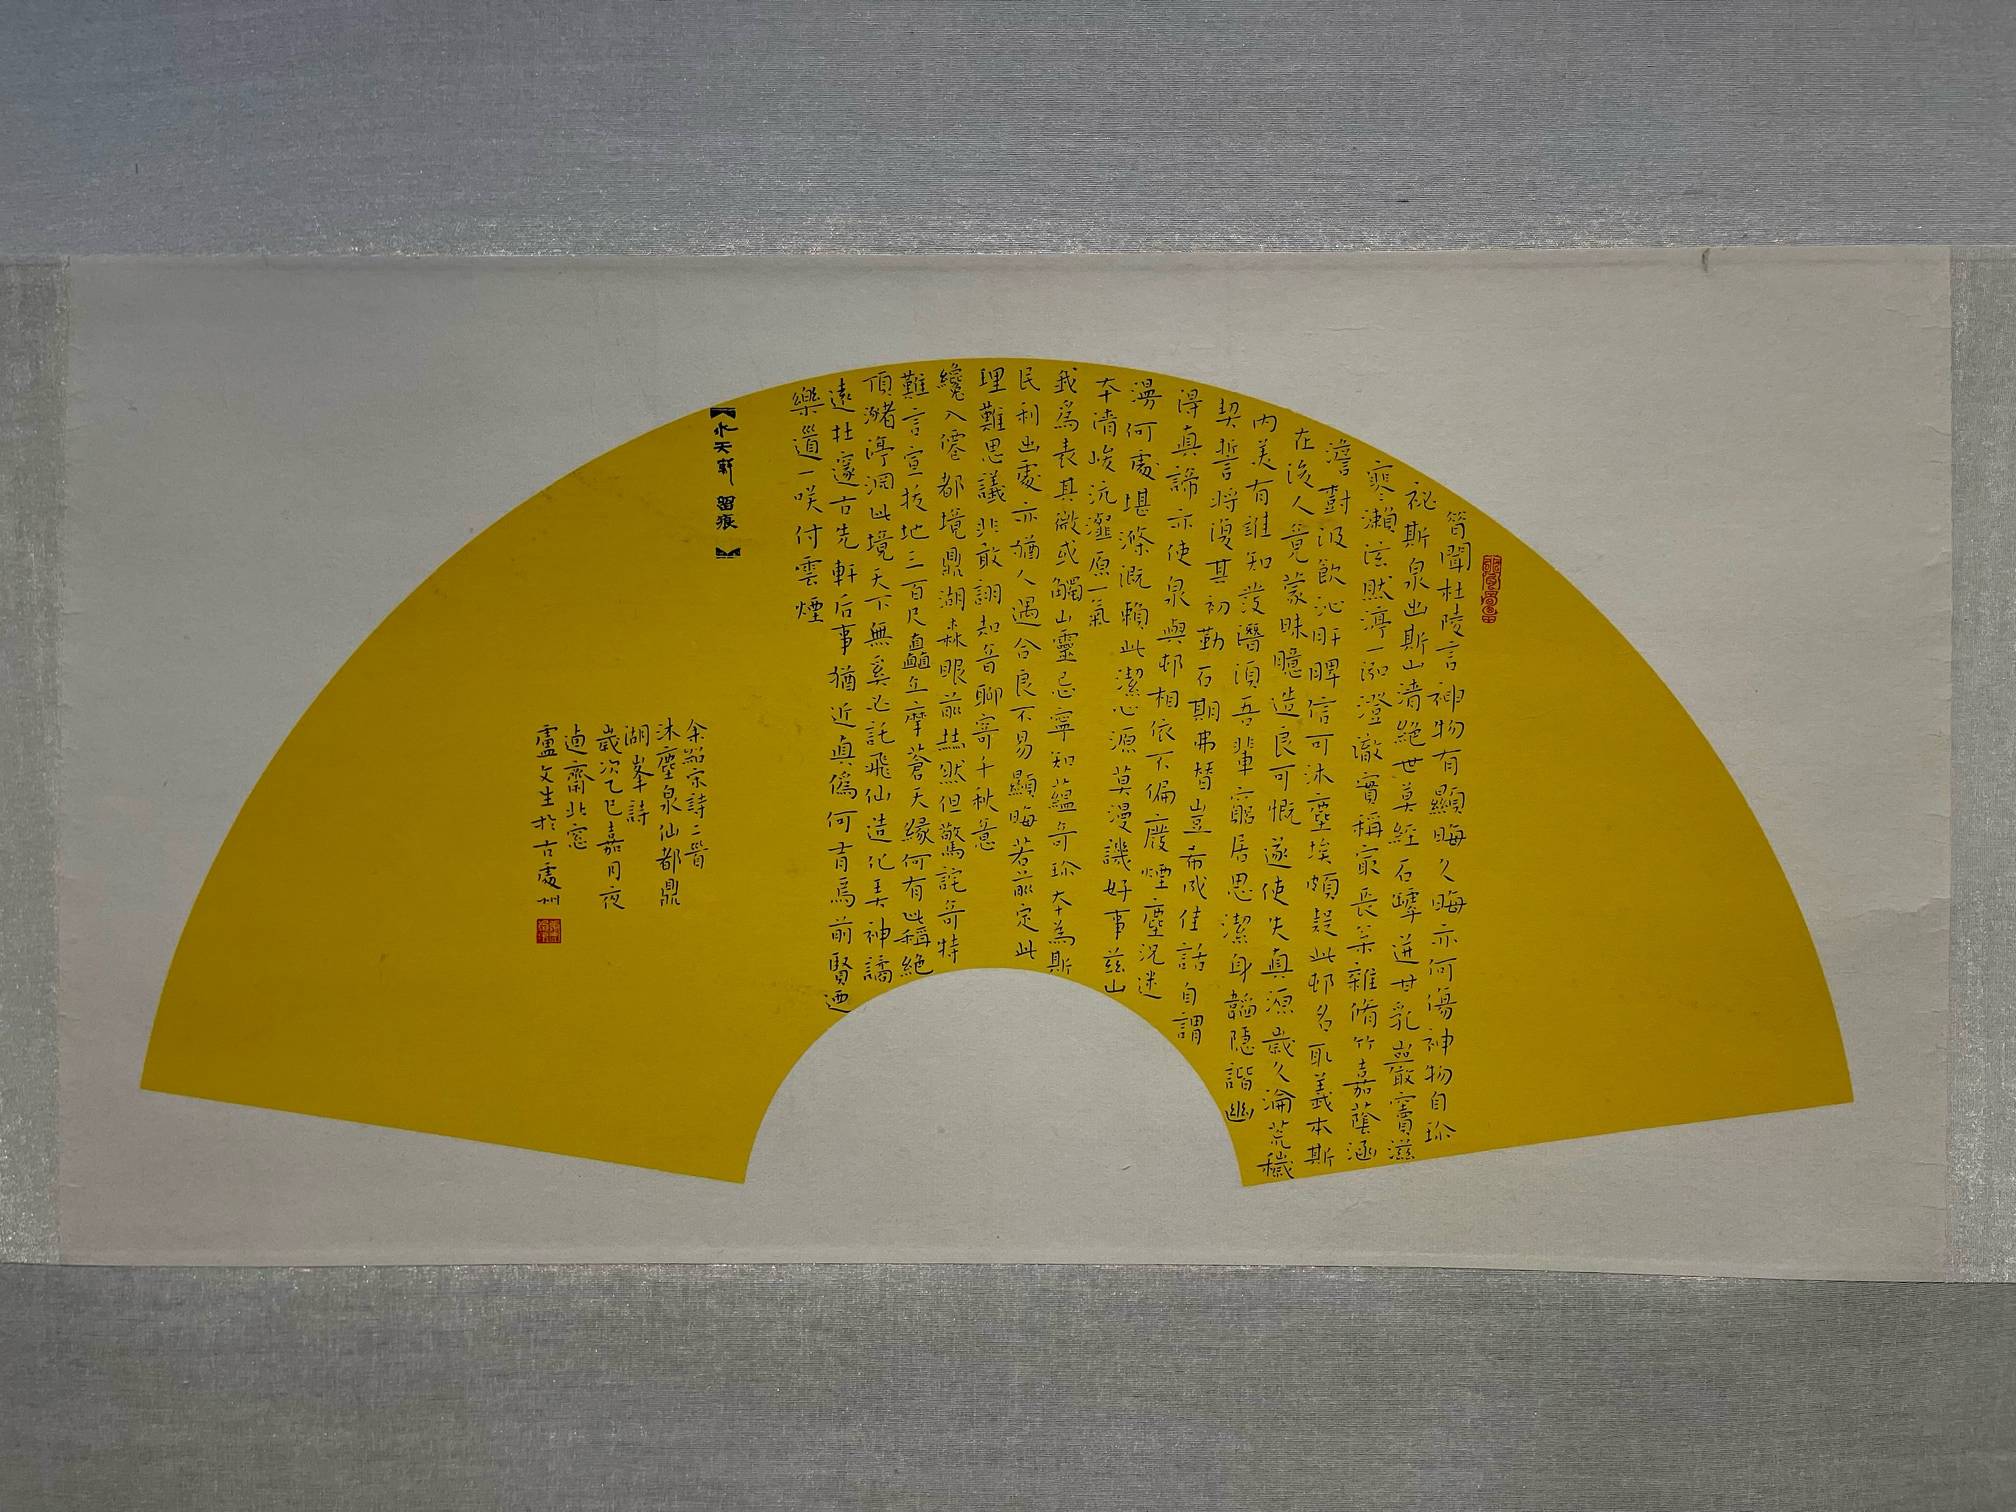 嘗聞杜陵言神物有顯晦久晦亦何傷神物自珍
祕斯泉出斯山清絕世莫經石罅迸甘乳巖竇滋
奫瀨泫然渟一泓澄澈實稱最長菜雜脩竹嘉蔭涵
澹對汲飲沁肝脾信可沐塵埃頗疑此邨名取義本斯
在後人竟蒙昧臆造良可慨遂使失真源歲久淪荒穢
內美有誰知發潛須吾輩窮居思潔身韜隱諧幽
契誓將復其初勒石期弗替豈希成佳話自謂
得真諦亦使泉與邨相依不偏廢煙塵況迷
漫何處堪滌溉賴此潔心源莫漫譏好事茲山
本清峻沆瀣原一氣
我為表其微或觸山靈忌寧知蘊奇珍本為斯
民利出處亦猶人遇合良不易顯晦若前定此
理難思議非敢詡知音聊寄千秋意
纔入僊都境鼎湖森眼前赫然但驚詫奇特
難言宣拔地三百尺矗立摩蒼天緣何有此稱絕
頂瀦渟淵此境天下無奚必託飛仙造化弄神譎
遠杜邃古先軒后事猶近真偽何肯為前賢迺
樂道一咲付雲煙
【水天軒 留痕】
余紹宋詩二首
沐塵泉仙都鼎
湖峯詩
歲次乙巳嘉月夜
卣齋北窓
盧文生於古處州